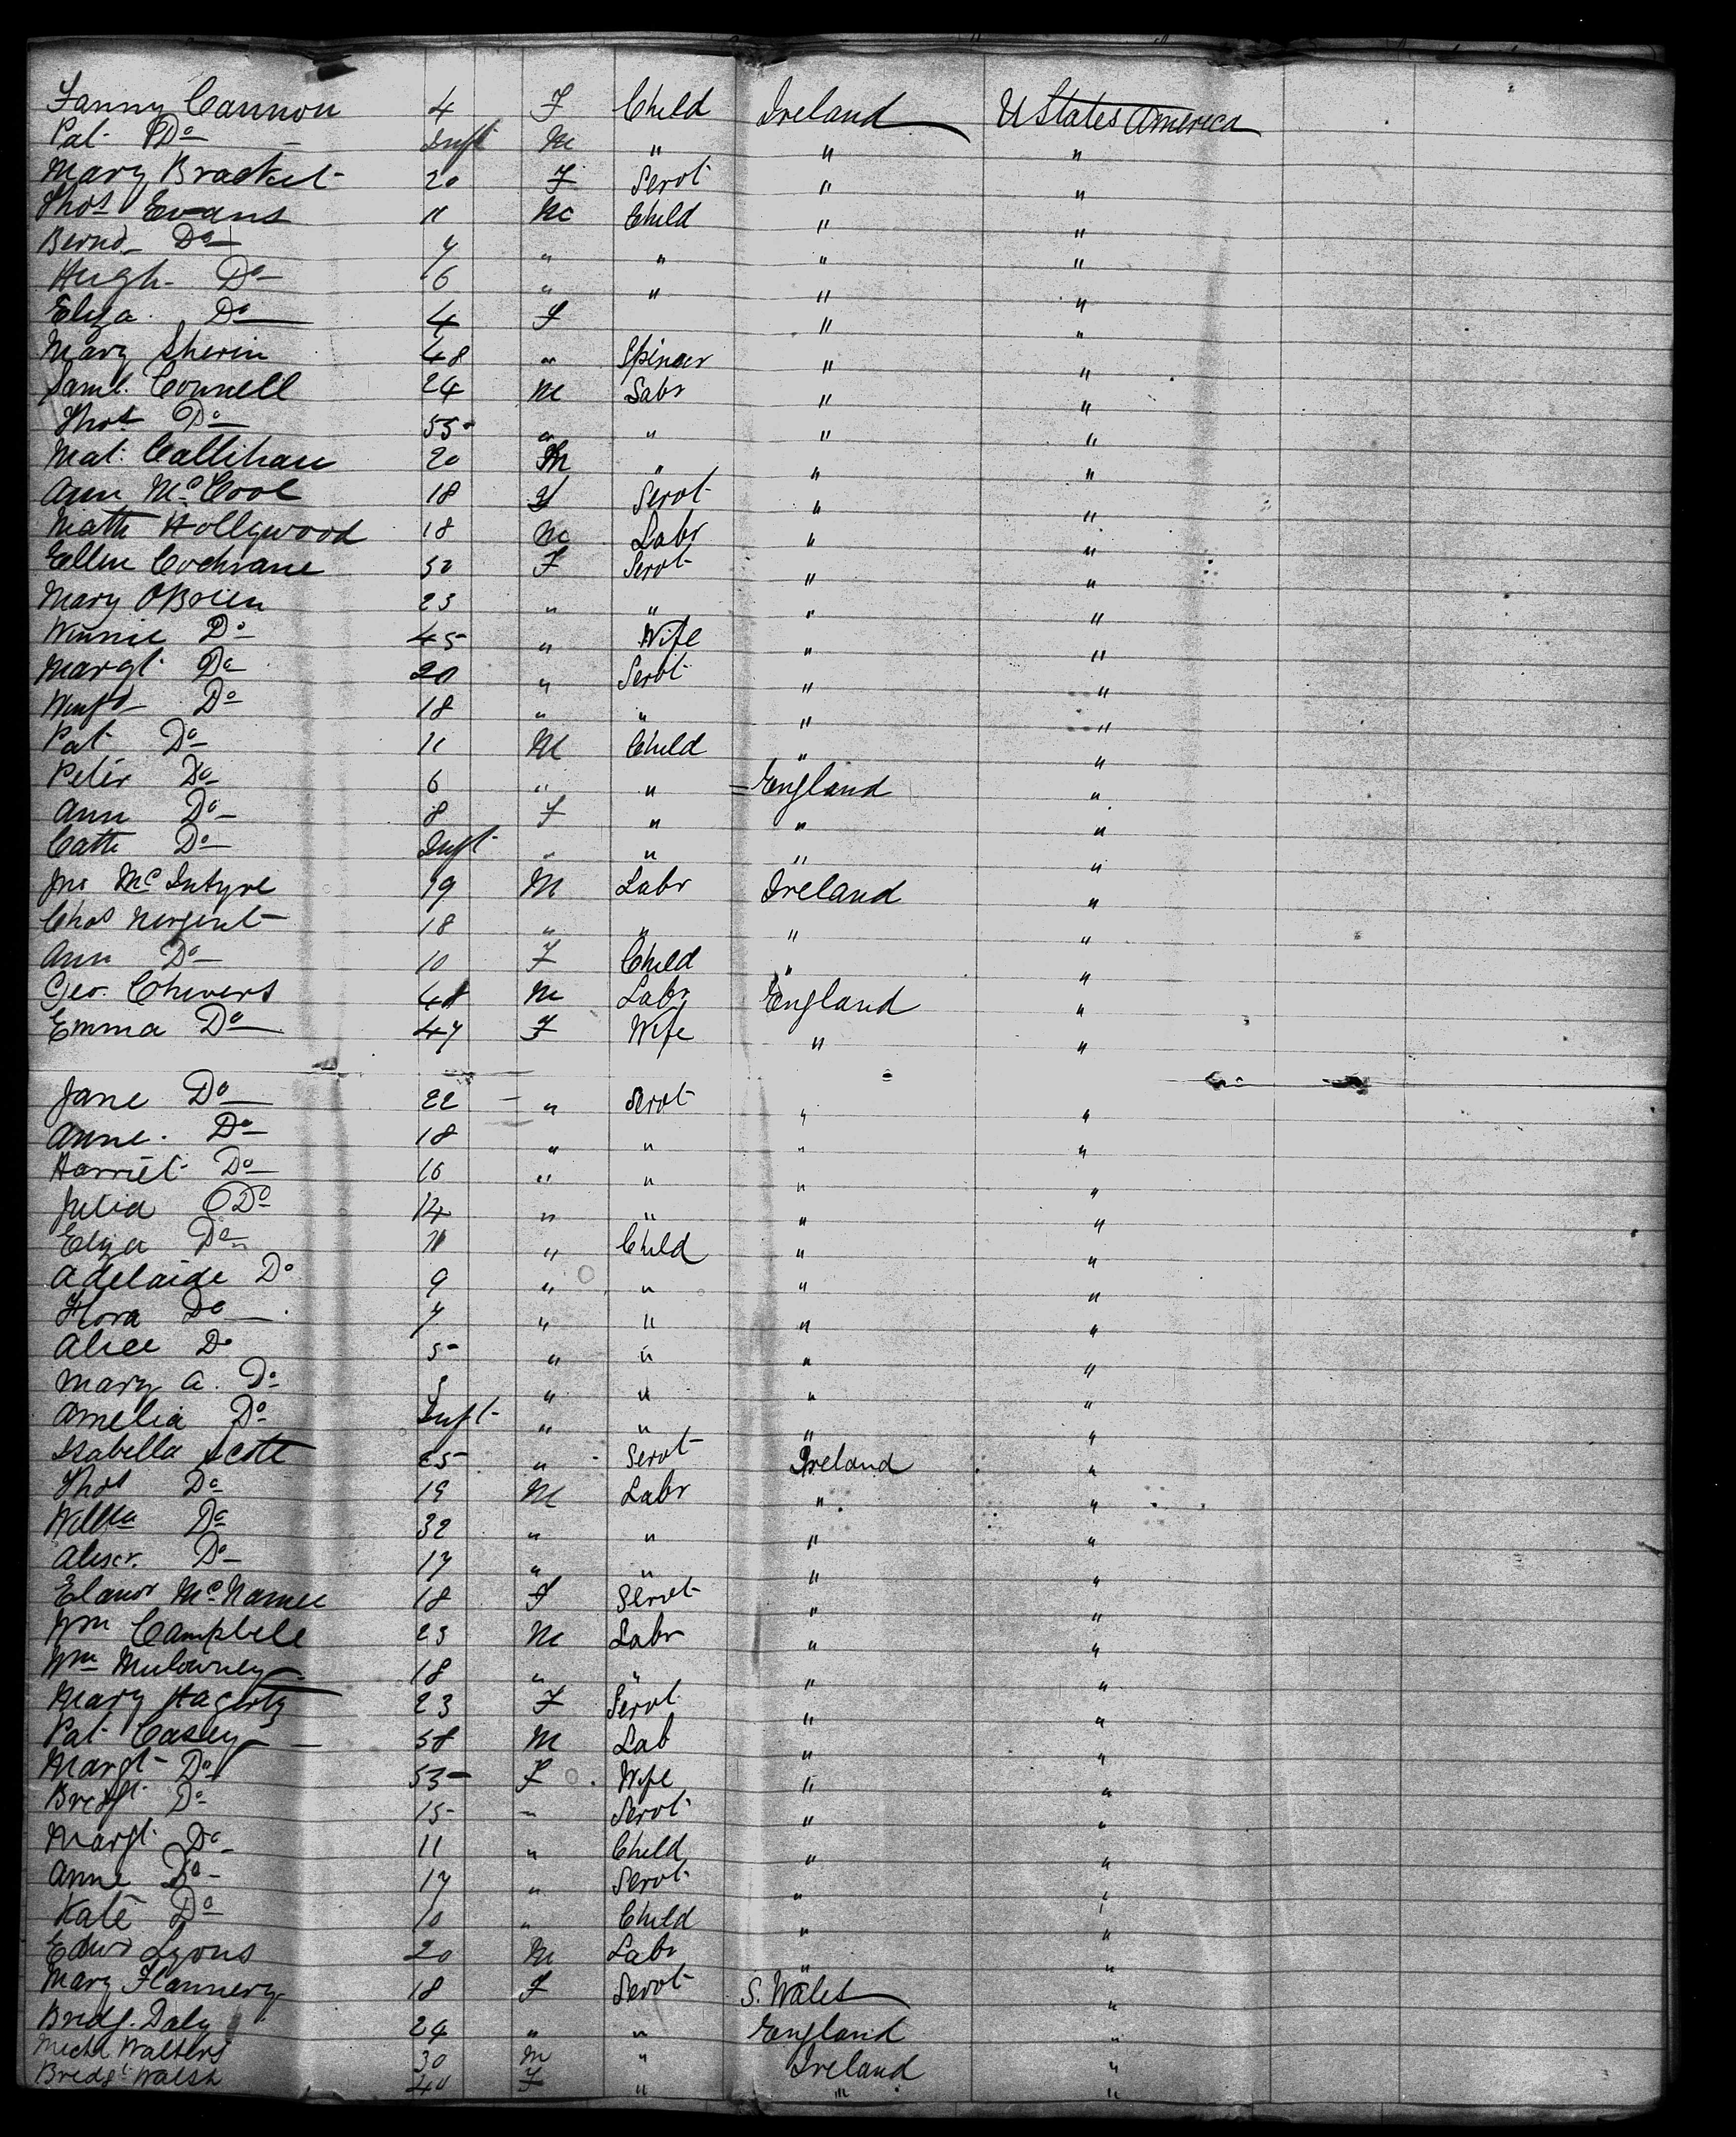 Fanny Cannon 4 F Child Ireland U States America
Pat Do Inft M " " "
Mary Bracket 20 F Servt " "
Thos Evans 11 M Child " "
Bernd Do 7 " " " "
Hugh Do 6 " " " "
Eliza Do 4 F " "
Mary Sherin 48 " Spinner " "
Saml. Connell 24 M Labr " "
Thos Do 55 " " " "
Mat. Callihan 20 M " " "
Ann McCool 18 F Servt " "
Matth Hollywood 18 M Labr " "
Ellen Cochrane 50 F Servt " "
Mary OBrien 23 " " " "
Winnie Do 45 " Wife " "
Margt. Do 20 " Servt " "
Winfd Do 18 " " " "
Pat Do 11 M Child " "
Peter Do 6 " " England "
Ann Do 8 F " " "
Cath Do Inft " " " "
Jno McIntyre 19 M Labr Ireland "
Chas Nugent 18 " " " "
Ann Do 10 F Child " "
Geo. Chivers 48 M Labr England "
Emma Do 47 F Wife " "
Jane Do 22 " Servt " "
Anne Do 18 " " " "
Harriet Do 16 " " " "
Julia Do 14 " " " "
Eliza Do 11 " Child " "
Adelaide Do 9 " " " "
Flora Do 7 " " " "
Alice Do 5 " " " "
Mary A. Do " " " "
Amelia Do Inft " " " "
Isabella Scott 25 " Servt Ireland "
Thos Do 19 M Labr " "
Willm Do 32 " " " "
Alexr. Do 17 " " " "
Elanor McNamee 18 F Servt " "
Wm Campbell 23 M Labr " "
Wm Mulowney 18 " " " "
Mary Hagerty 23 F Servt " "
Pat Casey 58 M Lab " "
Margt Do 53 F Wife " "
Bredgt. Do 15 " Servt " "
Margt. Do 11 " Child " "
Anne Do 17 " Servt " "
Kate Do 10 " Child " "
Edwd Lyons 20 M Labr " "
Mary Flannery 18 F Servt S. Wales "
Bredg. Daly 24 " " England "
Michl. Walters 30 M " Ireland "
Bredgt Walsh 40 F " " "